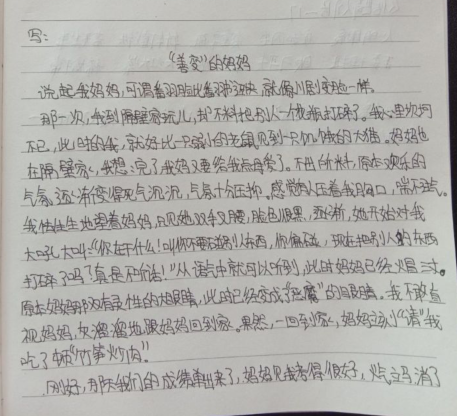 写：
"善变"的妈妈
说起我妈妈，可谓翻脸比翻书还快，就像川剧变脸一样。
那一次，我到隔壁家玩儿，却不料把别人一个花瓶打碎了。我心里坎坷
不已，此时的我，就好比一只弱小的老鼠见到一只饥饿的大猫。妈妈也
在隔壁家，我想：完了我妈又要给我点母爱了。不出所料，原本欢乐的
气氛逐渐变得死气沉沉，气氛十分压抑。感觉有人压着我胸口，喘不过气。
我怯生生地望着妈妈，只见她双手叉腰，脸色很黑，逐渐，她开始对我
大吼大叫："你在干什么！叫你不要碰别人东西，你偏碰，现在把别人的东西
打碎了吗？真是不听话！"从语气中就可以听到，此时妈妈已经火冒三丈。
原本妈妈那双有灵性的大眼睛，此时已经变成"恶魔"的目眼睛。我不敢直
视妈妈，灰溜溜地跟妈妈回到家。果然，一回到家，妈妈立刻"请"我
吃了顿"竹笋炒肉"。
刚好，那天我们的成绩单出来了，妈妈见我考得很好，火气立马消了